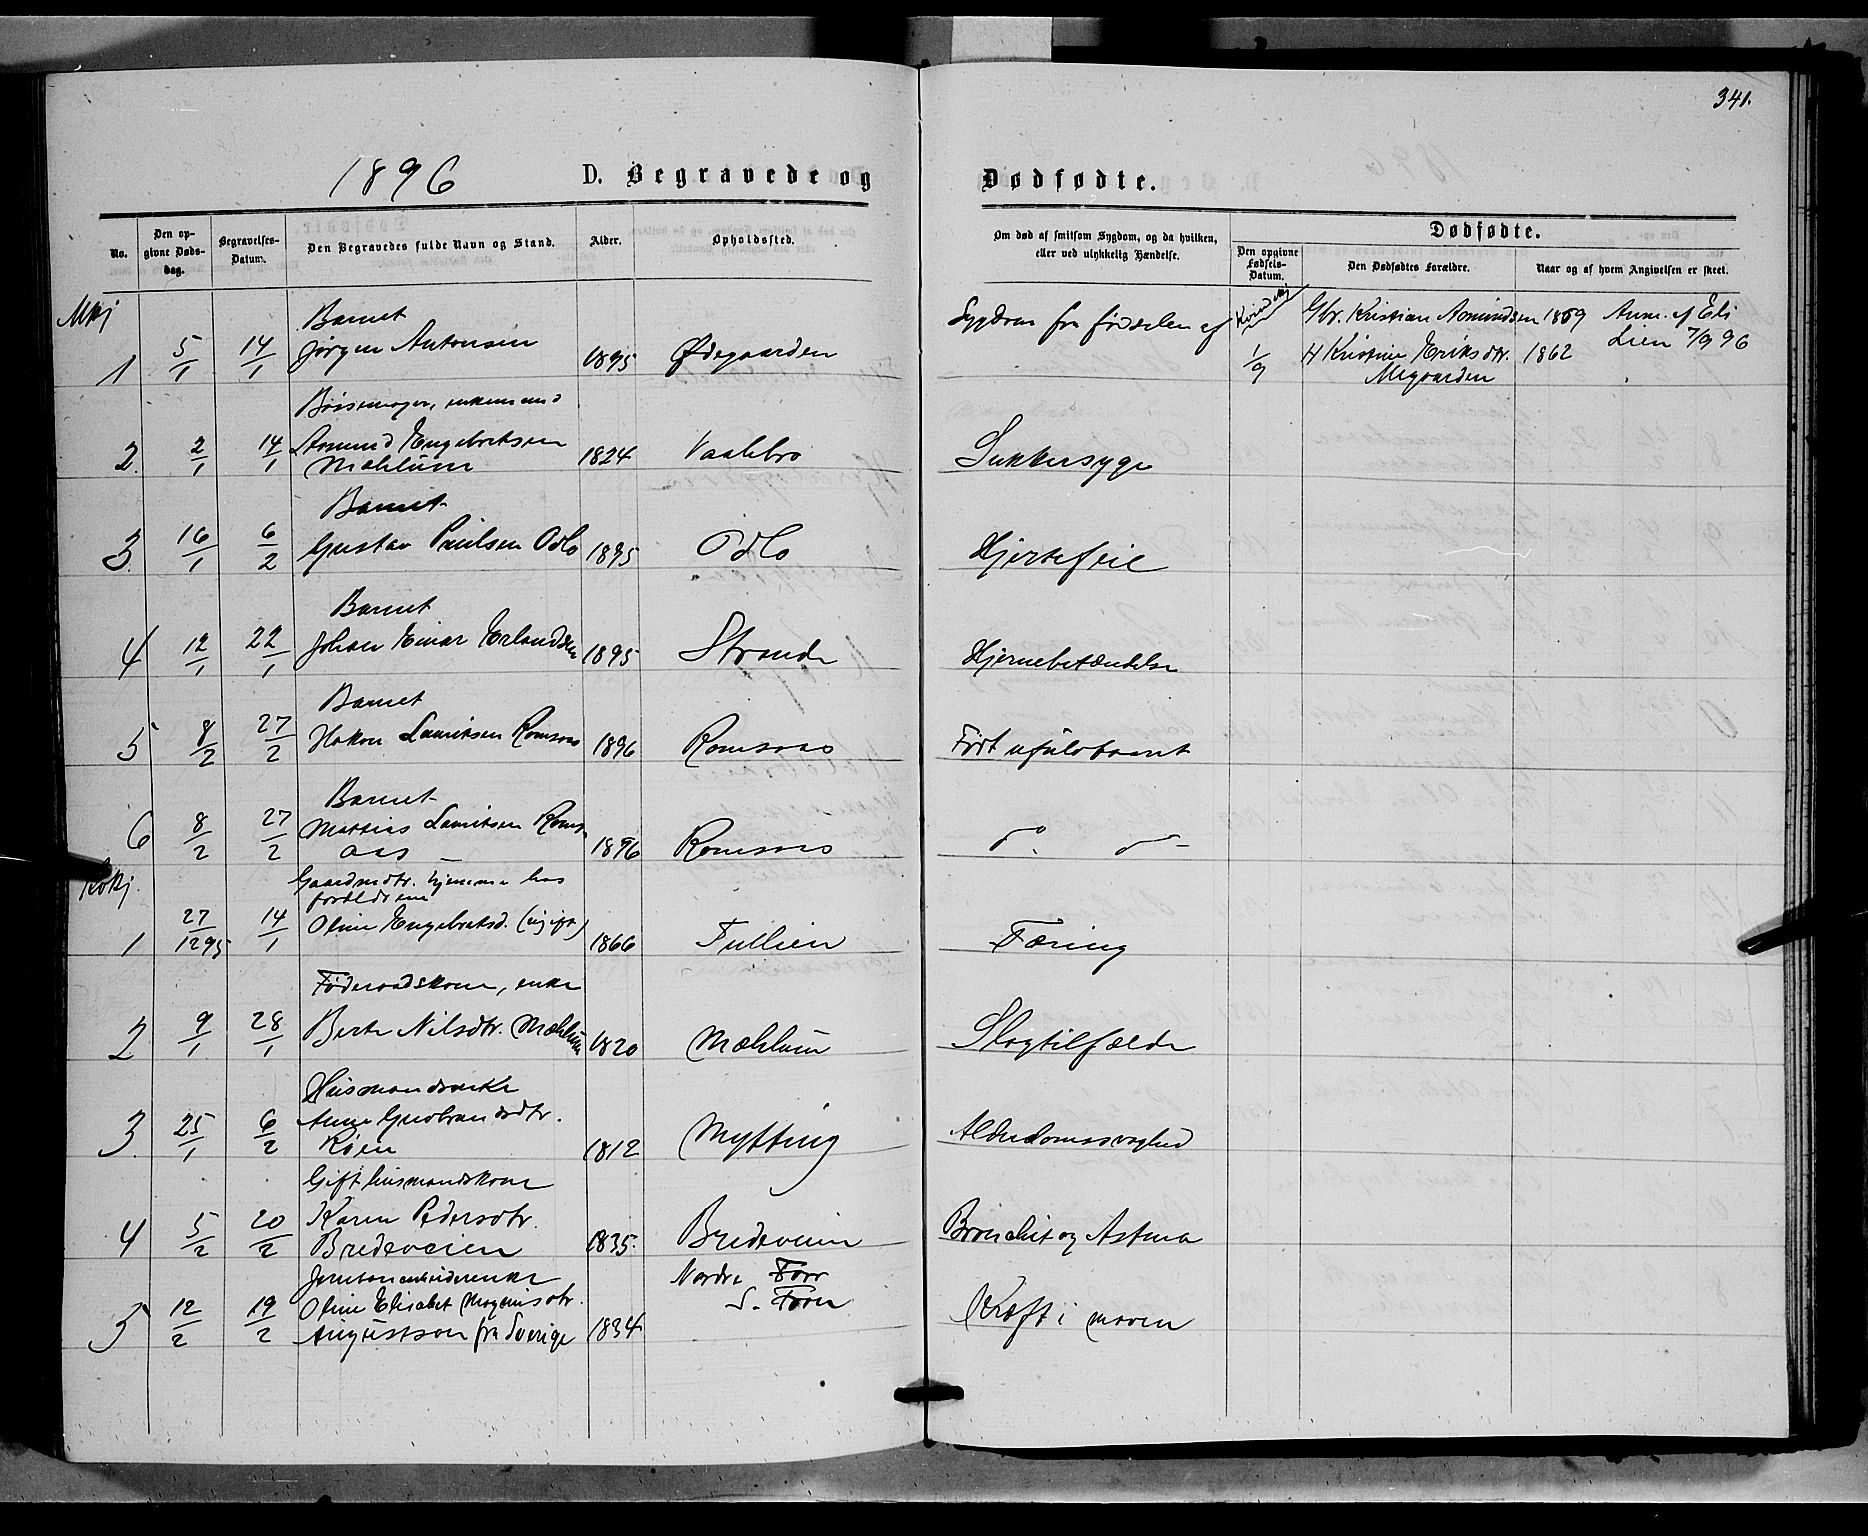 341.
1896 D. Begravede og Dødfødte.
No.
Den op-
givne Døds-
dag.
Begravelses-
Datum.
Den Begravedes fulde Navn og Stand.
Alder.
Opholdssted.
Om død af smitsom Sygdom, og da hvilken,
eller ved ulykkelig Hændelse.
Dødfødte.
Den opgivne
Fødsels-
Datum.
Den Dødfødtes Forældre.
Naar og af hvem Angivelsen er skeet.
Mkj
Barnet
1 5/1 14/1 Jørgen Antonsen 1895 Ødegaarden Sygdom fra fødselen af
Gbr. Kristian Amundsen 1869 Anm. af Eli
1/9 H Kristine Eriksdtr. 1862 Lien 7/9 96
Megaarden
enkemand
2. 2/1 14/1 Amund Engebretsen
Mæhlum 1824 Vaalebro Sukkersyge
Barnet
3. 16/1 6/2 Gustav Paulsen Odlo 1895 Odlo Hjertefeil
Barnet
4 12/1 22/1 Johan Einar Erlandsen 1895 Strande Hjernebetændelse
Barnet
5 8/2 27/2 Hakon Lauritsen Romsaas 1896 Romsaas Født ufuldbaaret
Barnet
6 8/2 27/2 Mattias Lauritsen Roms-
aas 1896 Romsaas do. do-
Kvkj.
Gaardmdtr. hjemme hos
forældrene
1 27/12 95 14/1 Oline Engebretsd. (ugift) 1866 Tullien Tæring
Føderaadskone, enke
2 9/1 28/1 Berte Nilsdtr. Mæhlum 1820 Mæhlum Slagtilfælde
Husmandsenke
3. 25/1 6/2 Anne Gudbrandsdtr.
Røen 1812 Mytting Alderdomssvaghed
Gift husmandskone
4 5/2 20/2 Karen Pedersdtr.
Bredeveien 1835. Bredeveien Bronchit og Astma
Jernbanearbeiderenke Nordre Forr
5 12/2 19/2 Oline Elisabet Magnusdtr. S. Foren
Augustson fra Sverige 1834 Kræft i maven